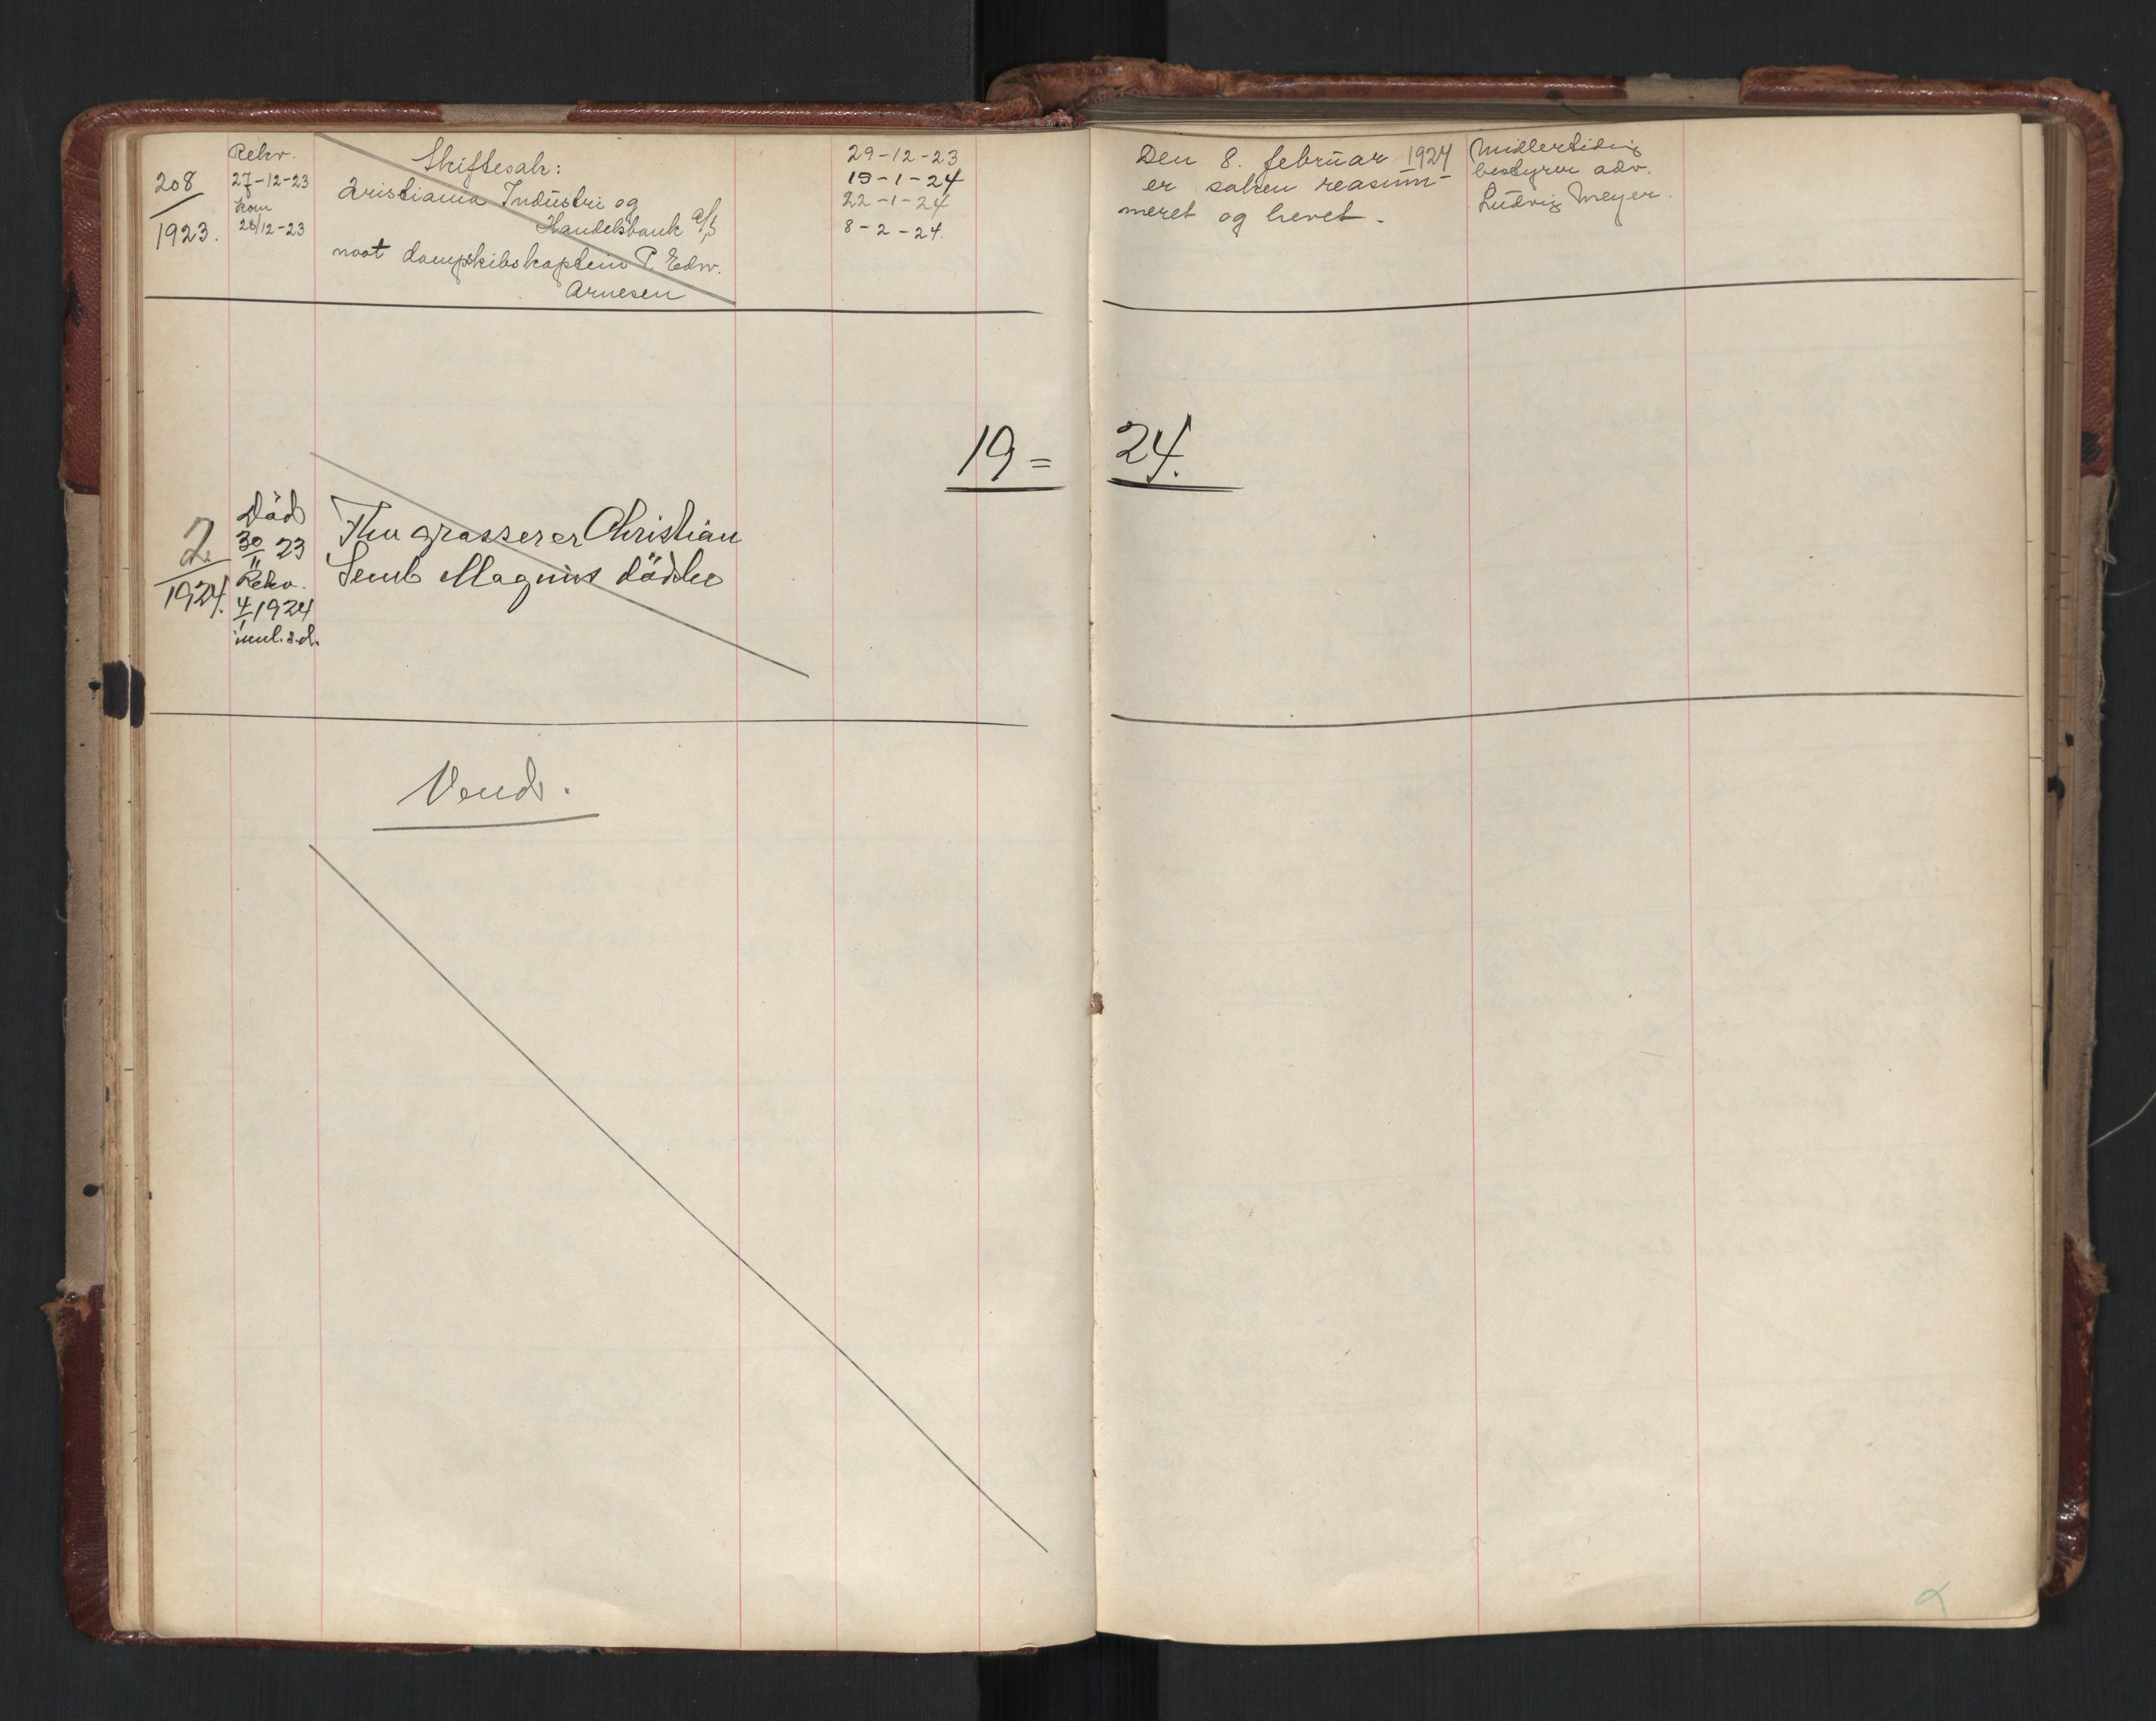 208
1923.
Rekv.
27-12-23
kom
28/12-23
Skiftesak:
Kristiania Industri og
Handelsbank a/s
mot dampskibskaptein P. Edw.
Arnesen
29-12-23
15-1-24
22-1-24
8-2-24.
Den 8. februar 1924
er saken reasum-
meret og hevet.
Midlertidig
bestyrer adv.
Ludvig Meyer.
19 = 24.
2.
1924.
Död
30/11 23
Rekv.
4/1 1924
innl. s.d.
Christian
Semb Magnus
Vend.